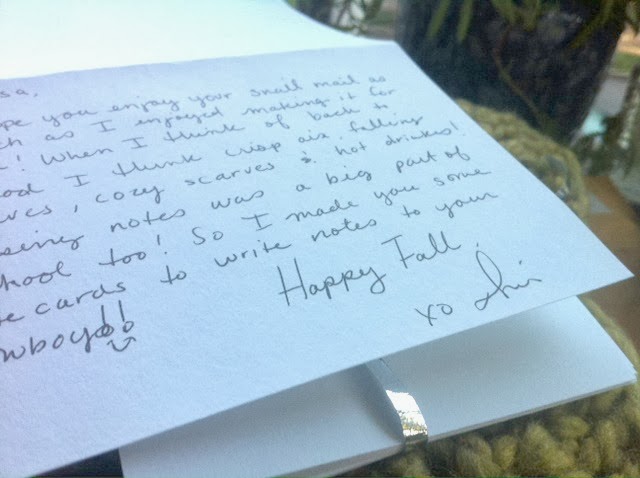 sa,
ope you enjoy your snail mail as
ch as I enjoyed making it for
! When I think of back to
ool I think crisp air, falling
ves, cozy scarves & hot drinks!
ssing notes was a big part of
hool too! So I made you some
e cards to write notes to your
wboy!!
Happy Fall,
xo